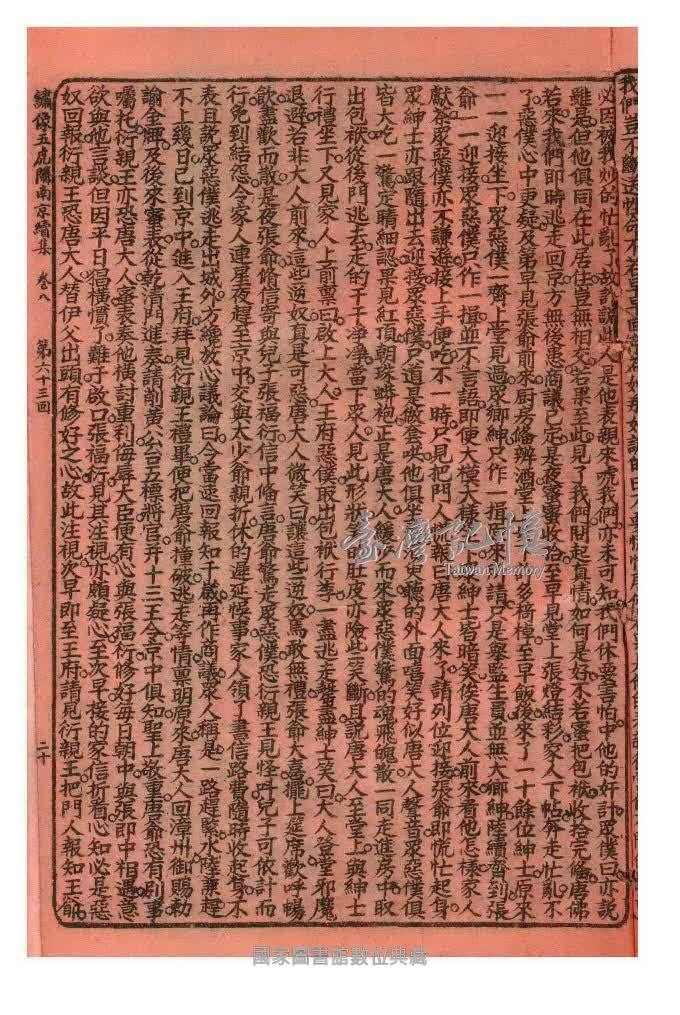 必因被我們的忙亂了故詐請此人是他表親來唬我們亦未可知我們休要害怕中他的奸計眾僕曰亦說
雖是但他俱同在此居住豈無相交若果至此見了我們問起真情如何是好不若蜜把包袱收拾完俻唐佛
若來我們即時逃走回京方無後患商議已定是夜蜜蜜收拾至早見堂上張燈結彩家人下帖奔走忙亂不
了惡僕心中更疑及第早見張爺前來厨房俻辦酒堂多椅棹至早飯後來了一十餘位紳士原來
一一迎接坐下眾惡僕一齊上堂見過眾鄉紳只作一揖原來請只是舉監生員並無大鄉紳陸續齊到張
爺一一迎接眾惡僕只作一揖並不言語即便大模大樣紳士皆暗笑俟唐大人前來看他怎樣家人
獻茶眾惡僕亦不謙遜接上手便吃不一時只見把門人報曰唐大人來了請列位迎接張爺即慌忙起身
眾紳士亦跟隨出去迎接眾惡僕只道是做套哄他俱坐聽的外面嘻笑好似唐大人聲音眾惡僕俱
皆大吃一驚定晴細認果見紅頂朝珠蟒袍正是唐大人而來眾惡僕驚的魂飛魄散一同走進房中取
出包袱從後門逃去走的干干净净當下眾人見此形狀肚皮亦險些笑斷且說唐大人至堂上與紳士
行禮坐下又見家人上前禀曰啟上大人王府惡僕取出包袱行李一盡逃走聲盡紳士笑曰大人登堂邪魔
退避若非大人前來這些逆奴真是可惡唐大人微笑曰讓這些逆奴焉敢無禮張爺大喜擺上筵席歡呼暢
飲盡歡而散是夜張爺脩信寄與兒子張福衍信中俻言唐爺驚走眾惡僕恐衍親王見怪吾兒子可依計而
行免到結怨令家人連星夜趕至京中交與太少爺親折休的遲延悞事家人領了書信路費隨時收起身不
表且說眾惡僕逃走出城外方纔放心議論曰今當速回報知千歲再作商議眾人稱是一路趕緊水陸兼趕
不上幾日已到京中進入王府拜見衍親王禮畢便把唐爺撞破逃走等情禀明原來唐大人回漳州御賜勅
諭金輝及後來審表從乾清門進奏請削黃公台五標將官并十三王令京中俱知聖上敬重唐爺恐有別事
囑托衍親王亦恐唐大人審表奏他橫討重利侮辱大臣便有心與張福衍修好每日朝中與張即中相遇意
欲與他言談但因平日猖橫慣了難于啟口張福衍見其注視亦頗疑心至次早接的家信折看心知必是惡
奴回報衍親王恐唐大人替伊父出頭有修好之心故此注視次早即至王府請見衍親王把門人報知王爺
繡像五虎鬧南京續集 卷八 第六十三回 二十
臺灣記憶
Taiwan Memory
國家圖書館數位典藏